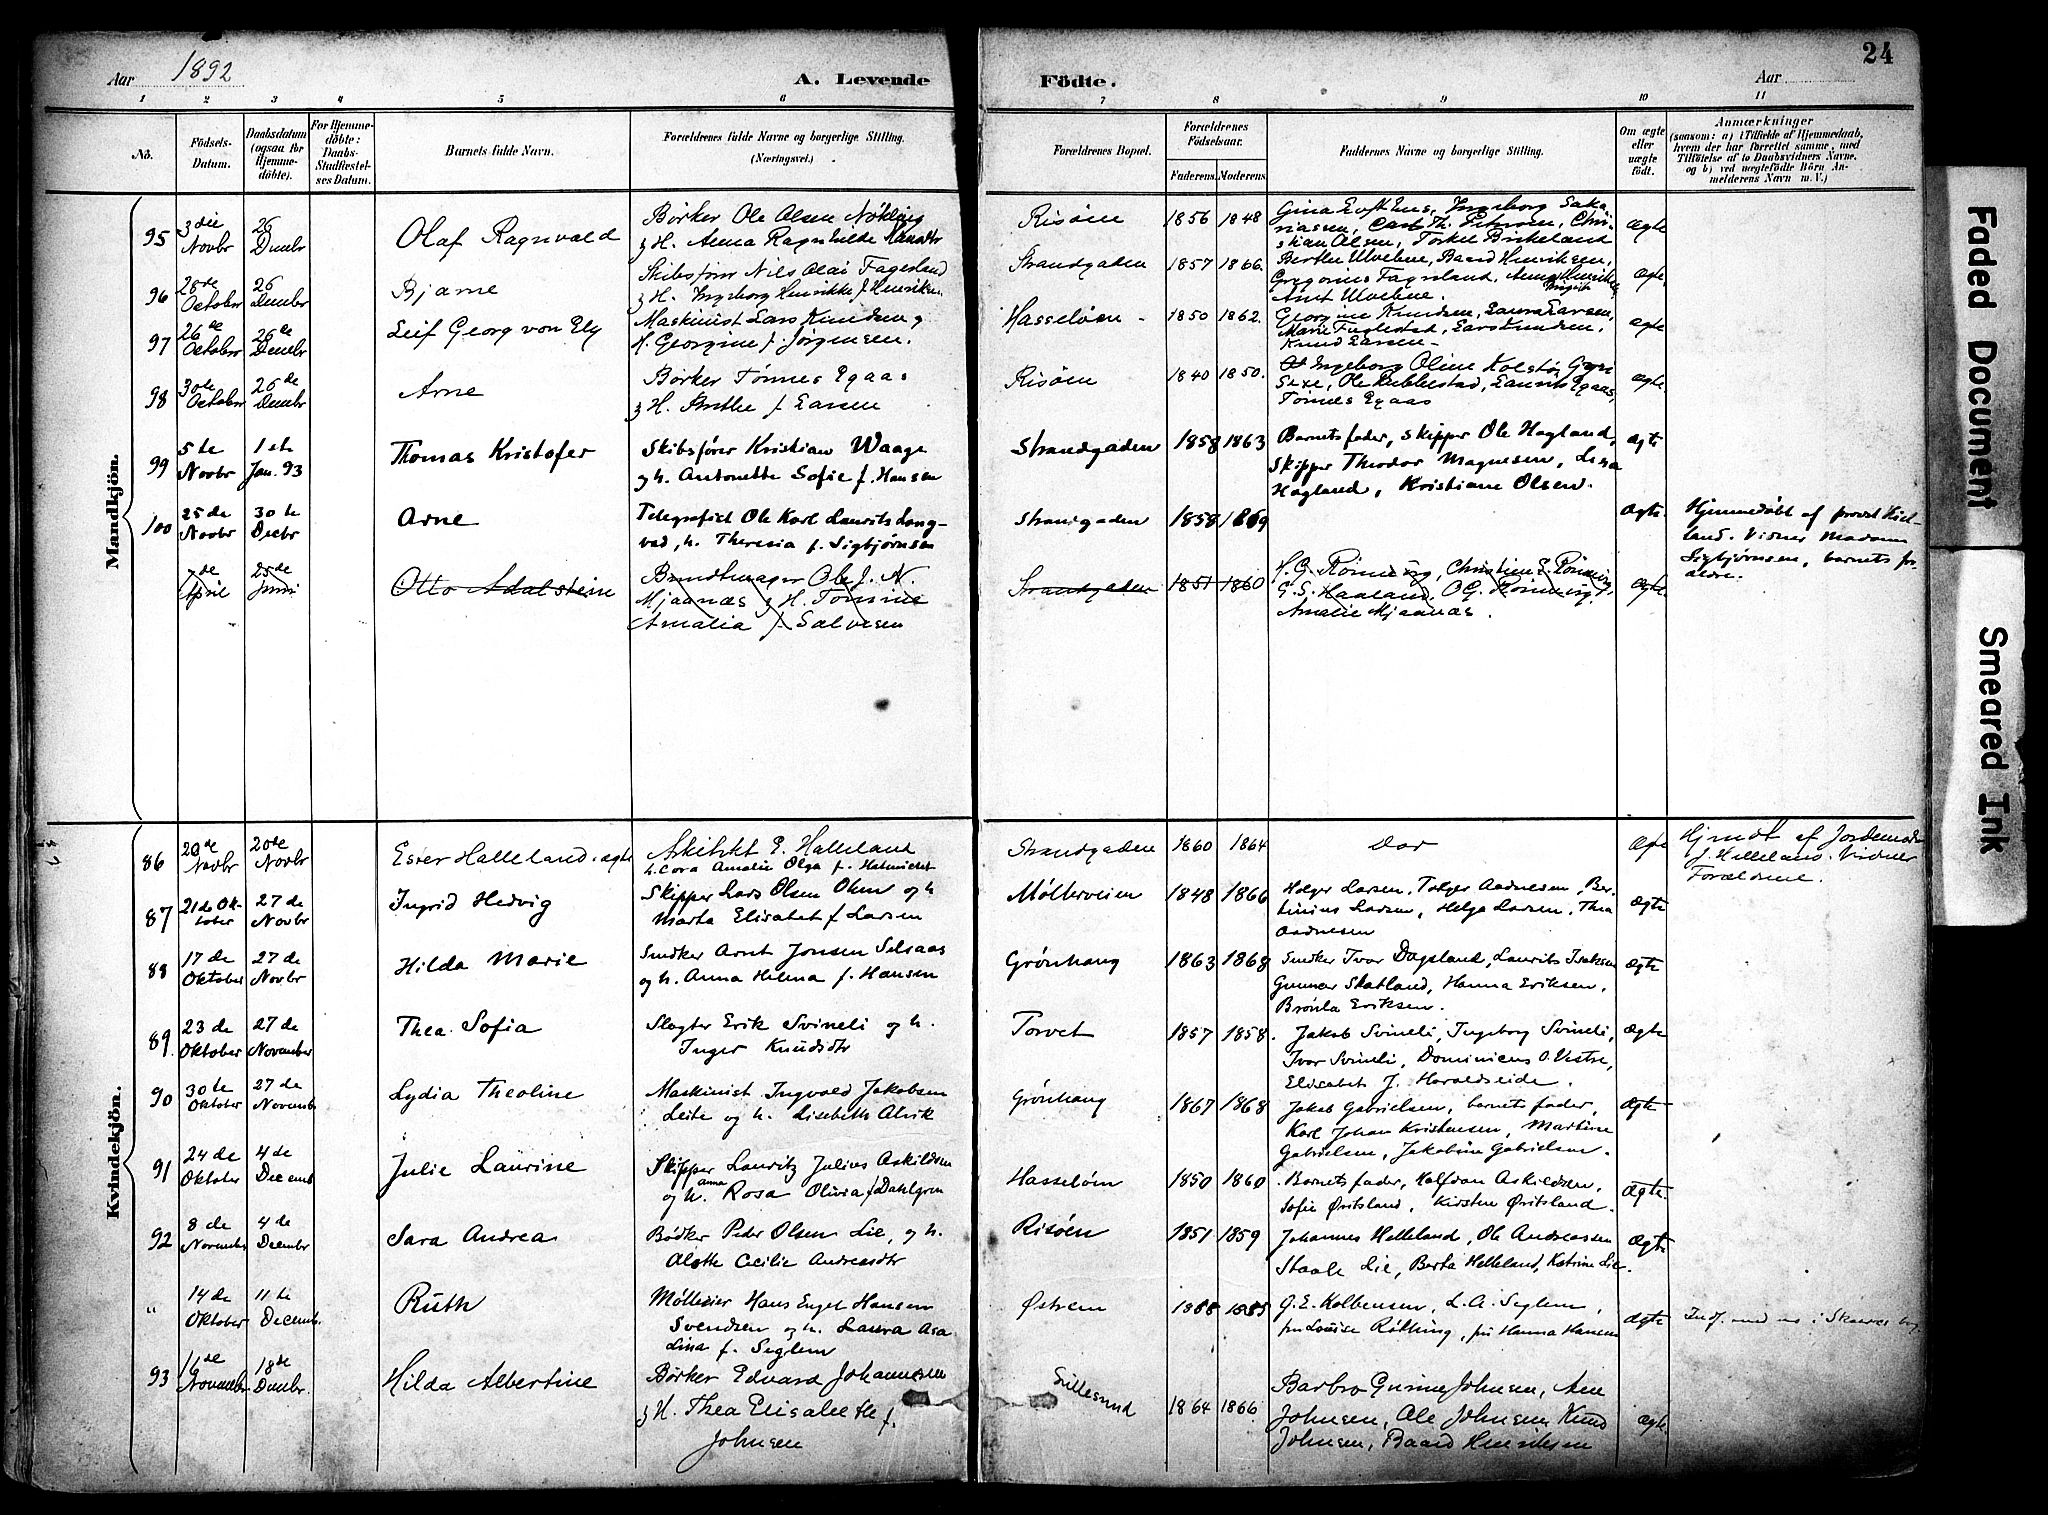 24
Aar 1892
A. Levende
Födte.
Aar
1 2 3 4 5 6 7 8 9 10 11
No.
Födsels-
Datum.
Daabsdatum
(ogsaa for
Hjemme-
döbte).
For Hjemme-
döbte:
Daabs-
Stadfæstel-
ses Datum.
Barnets fulde Navn.
Forældrenes fulde Navne og borgerlige Stilling.
(Næringsvei.)
Forældrenes Bopæl.
Forældrenes
Födselsaar.
Faderens. Moderens.
Faddernes Navne og borgerlige Stilling.
Om ægte
eller
uægte
födt.
Anmærkninger
(saasom: a) i Tilfælde af Hjemmedaab,
hvem der har forrettet samme, med
Tilföielse af to Daabsvidners Navne,
og b) ved uægtefödte Börn An-
melderens Navn m. V.)
Mandkjön.
95 3die Novbr 26 Dembr Olaf Ragnvald
Börker Ole Olsen Nökling
& H. Anna Ragnhilde
Risöen 1856 1848
Christian Olsen, Torkel Birkeland
ægte
96 28de October 26 Dembr Bjarne
Skibsförer Nils Olai Fagerland
& H. Ingeborg Henrikke f. Henriksen
Strandgaden 1857 1866.
Berthe Ulvebne, Baard Henriksen,
Gregorius Fagerland, Anna Henrikke
Amt Ulvebne.
ægte
97 26de October 26de Dembr Leif Georg von Ely
Maskinist Lars Knudsen &
H. Georgine f. Jørgensen.
Hasseløen - 1850 1862.
Georgine Knudsen, Laura Larsen,
Marie Fuglestad, Lars Knudsen,
Knud Larsen -
ægte
98 30te October 26de Dembr Arne
Börker Tönnes Egaas
& H. Berthe f. Larsen
Risöen 1840 1850.
Ingeborg Oline Kolstö,
Ole Dubbestad, Laurits Egaas,
Tönnes Egaas
ægte
99 5te Novbr 1ste Jan. 93 Thomas Kristofer
Skibsförer Kristian Waage
og h. Antonette Sofie f. Hansen
Strandgaden 1858 1863
Barnets fader, Skipper Ole Hagland,
Skipper Theodor Magnesen, Lina
Hagland, Kristiane Olsen.
ægte
100 25de Novbr 30te Decbr Arne
Telegrafist Ole Karl Laurits Lang-
vad, h. Theresia f. Sigbjørnsen
Strandgaden 1858 1869
ægte.
Hjemmedøbt af provst Kiel-
land. Vidner Madam
Sigbjørnsen, barnets for-
ældre.
7de April 25de Juni Otto Adalstein
Brandtmager Ole J. N.
Mjaanæs & H. Tomine
Amalia f. Salvesen
Strandgaden 1851 1860
H. G. Rönnevig, Christien E. Rönnevig,
G. S. Haaland, O G. Rönnevig,
Amalie Mjaanæs.
ægte
Kvindekjön.
86 20de Novbr 20de Novbr Ester Halleland. ægte
E. Halleland
h. Cora Amalie Olga f.
Strandgaden 1860 1864
Döv
ægte
Hjmdt af Jordemoder
J. Helleland. Vidner
Forældrene.
87 21de Oktober 27de Novbr Ingrid Hedvig
Skipper Lars Olsen Ohm og h
Marta Elisabet f. Larsen
Møllerveien 1848 1866
Holger Larsen, Tolger Aadnesen, Ber-
tinius Larsen, Helga Larsen, Thea
Aadnesen
ægte
88 17de Oktober 27de Novbr Hilda Marie
Snedker Arnt Jonsen Selsaas
og h. Anna Helena f. Hansen
Grønhaug 1863 1868
Snedker Ivar Dagsland, Laurits Isaksen
Gunnar Skatland, Hanna Eriksen,
Brönla Eriksen.
ægte
89. 23de Oktober 27de November Thea Sofia
Slagter Erik Svineli og h.
Inger Knudsdtr
Torvet 1857 1858.
Jakob Svineli, Ingeborg Svineli,
Ivar Svineli, Dominicus O. Vestre,
Elisabet J. Haraldseide.
ægte
90 30te Oktober 27de Novemb Lydia Theoline
Maskinist Ingvald Jakobsen
Leite og h. Lisebeth Alvik
Grønhaug 1867 1868
Jakob Gabrielsen, barnets fader,
Karl Johan Kristensen, Martine
Gabrielsen, Jakobine Gabrielsen.
ægte
91 24de Oktober 4de Decemb Julie Laurine
Skipper Lauritz Julius Askildsen
og h. Anna Rosa Olivia f. Dahlgren
Hasseløen 1850 1860.
Barnets fader, Halfdan Askildsen,
Sofie Øritsland, Kirsten Øritsland.
ægte.
92 8de November 4de Decembr Sara Andrea
Bødker Peder Olsen Lie, og h.
Alette Cecilie Andreasdtr
Risöen 1851 1859
Johannes Helleland, Ole Andreassen
Staale Lie, Berta Helleland, Katrine Lie.
ægte
" 14de Oktober 11te Decemb. Ruth
Mølleeier Hans Engel Hansen
Svendsen og h. Laura Asa-
Lina f. Seglem
Østrem
G. E. Kolbensen, L. A. Seglem,
fru Louise Røthing, fru Hanna Hansen
ægte
Indf. med no i Skaares bog
93 16de Novembr 18de Dembr. Hilda Albertine
Börker Edvard Johannesen
& H. Thea Elisabethe f.
Johnsen
Lillesund 1864 1866
Barbro Gurine Johnsen, Ane
Johnsen, Ole Johnsen, Knud
Johnsen, Baard Henriksen
ægte.
Faded Document
Smeared Ink